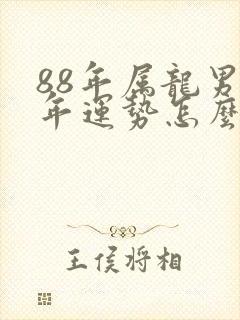 88年属龍男
年運勢怎麼
王侯将相